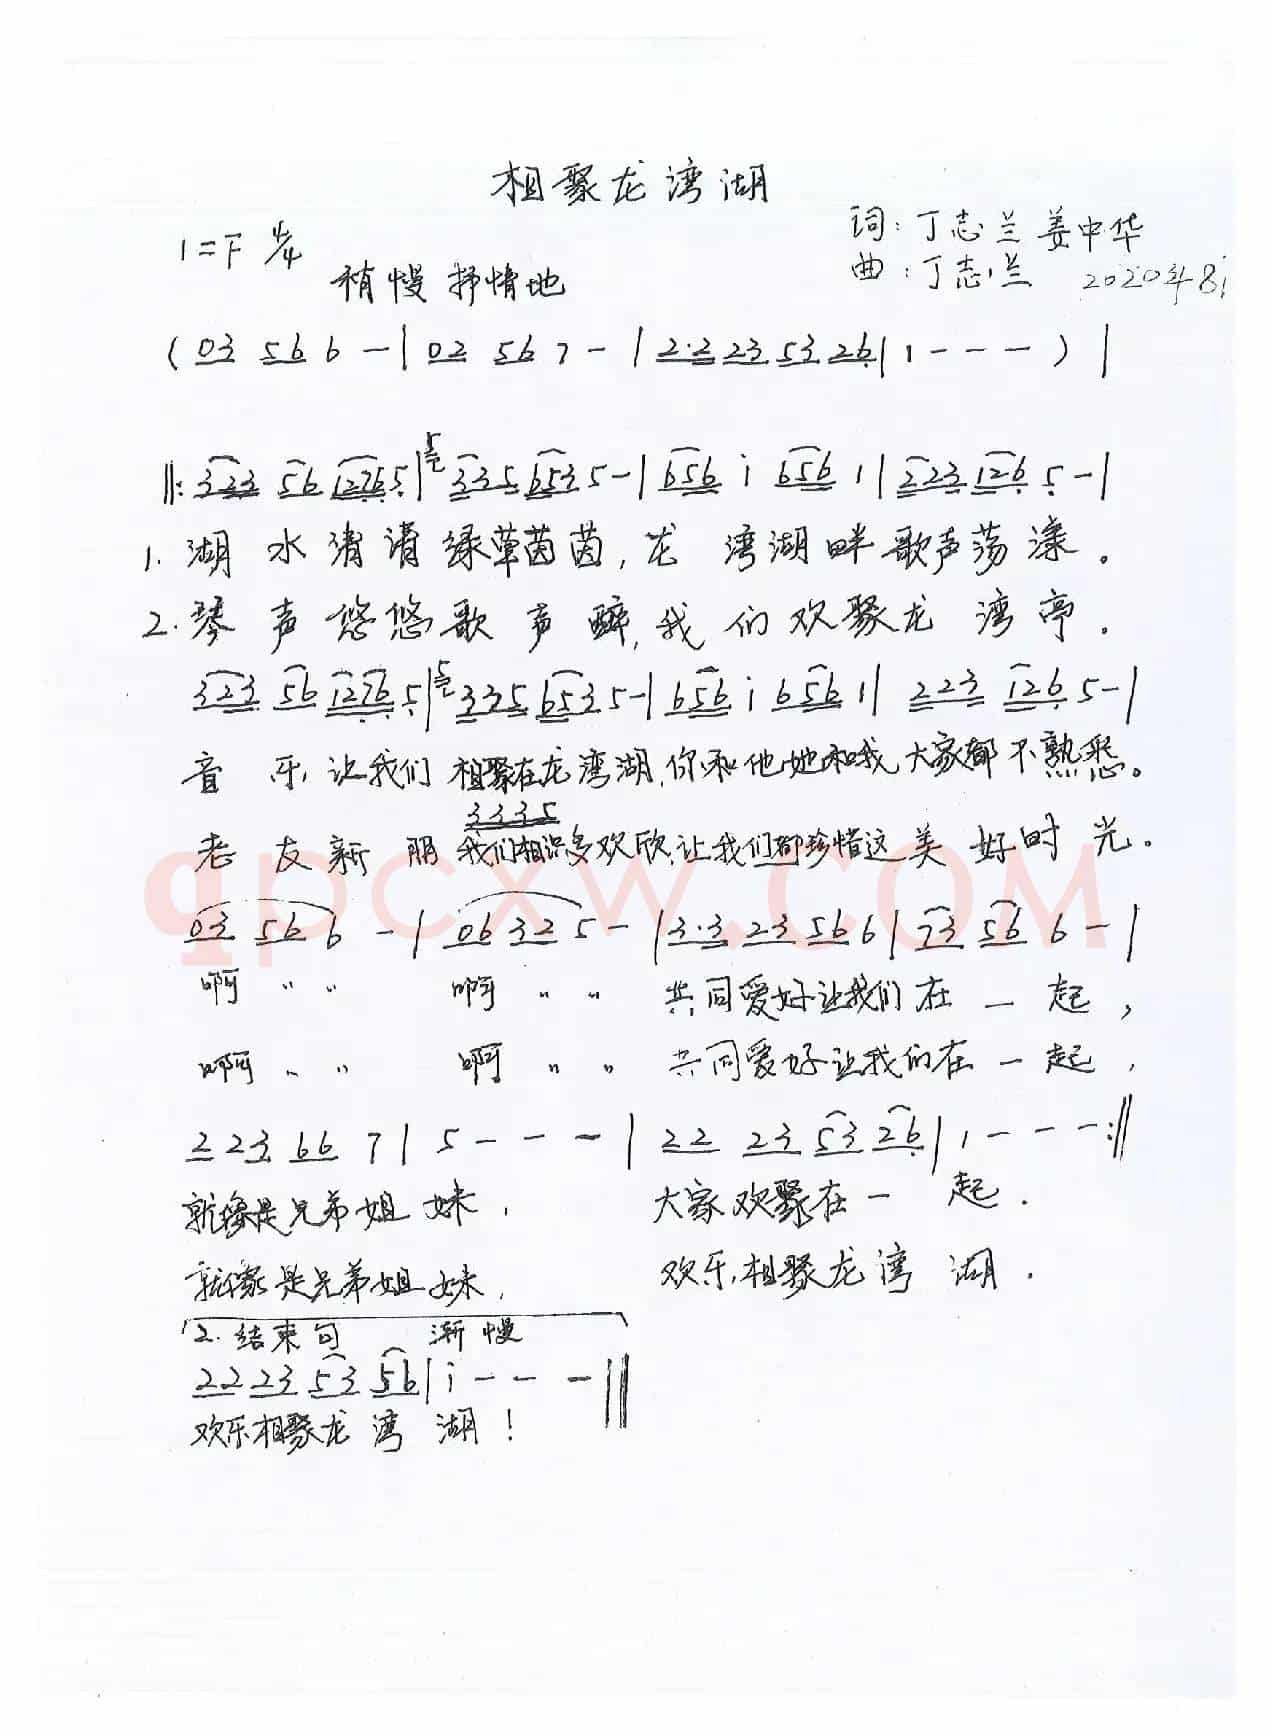 相聚龙湾湖
词：丁志兰 姜中华
1=F 4/4
曲：丁志兰 2020年8
稍慢 抒情地
(03 56 6 -|02 56 7 -|2·2 23 53 26|1 - - -)|
‖:323 56 1276 5|5 335 6535 -|656 i 656 1|223 126 5 -|
1.湖水清清绿草茵茵,龙湾湖畔歌声荡漾。
2.琴声悠悠歌声醉,我们欢聚龙湾亭.
323 56 1276 5|5 335 6535 -|656 i 656 1|223 126 5 -|
音乐让我们相聚在龙湾湖,你和他她和我大家都不熟悉。
3335
老友新朋我们相识多欢欣,让我们都珍惜这美好时光.
03 56 6 -|06 32 5 -|3·3 23 56 6|73 56 6 -|
啊 〃 〃 啊 〃 〃 共同爱好让我们在一起,
啊 〃 〃 啊 〃 〃 共同爱好让我们在一起,
2 23 66 7|5 - - -|22 23 53 26|1 - - -:‖
就像是兄弟姐妹, 大家欢聚在一起.
就像是兄弟姐妹, 欢乐相聚龙湾湖.
2.结束句 渐慢
22 23 53 56|i - - -‖
欢乐相聚龙湾湖!
qpcxw.com